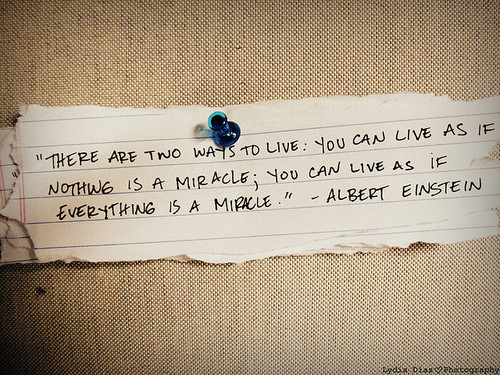 "THERE ARE TWO WAYS TO LIVE: YOU CAN LIVE AS IF
NOTHING IS A MIRACLE; YOU CAN LIVE AS IF
EVERYTHING IS A MIRACLE." - ALBERT EINSTEIN
Lydia Diaz♡Photography